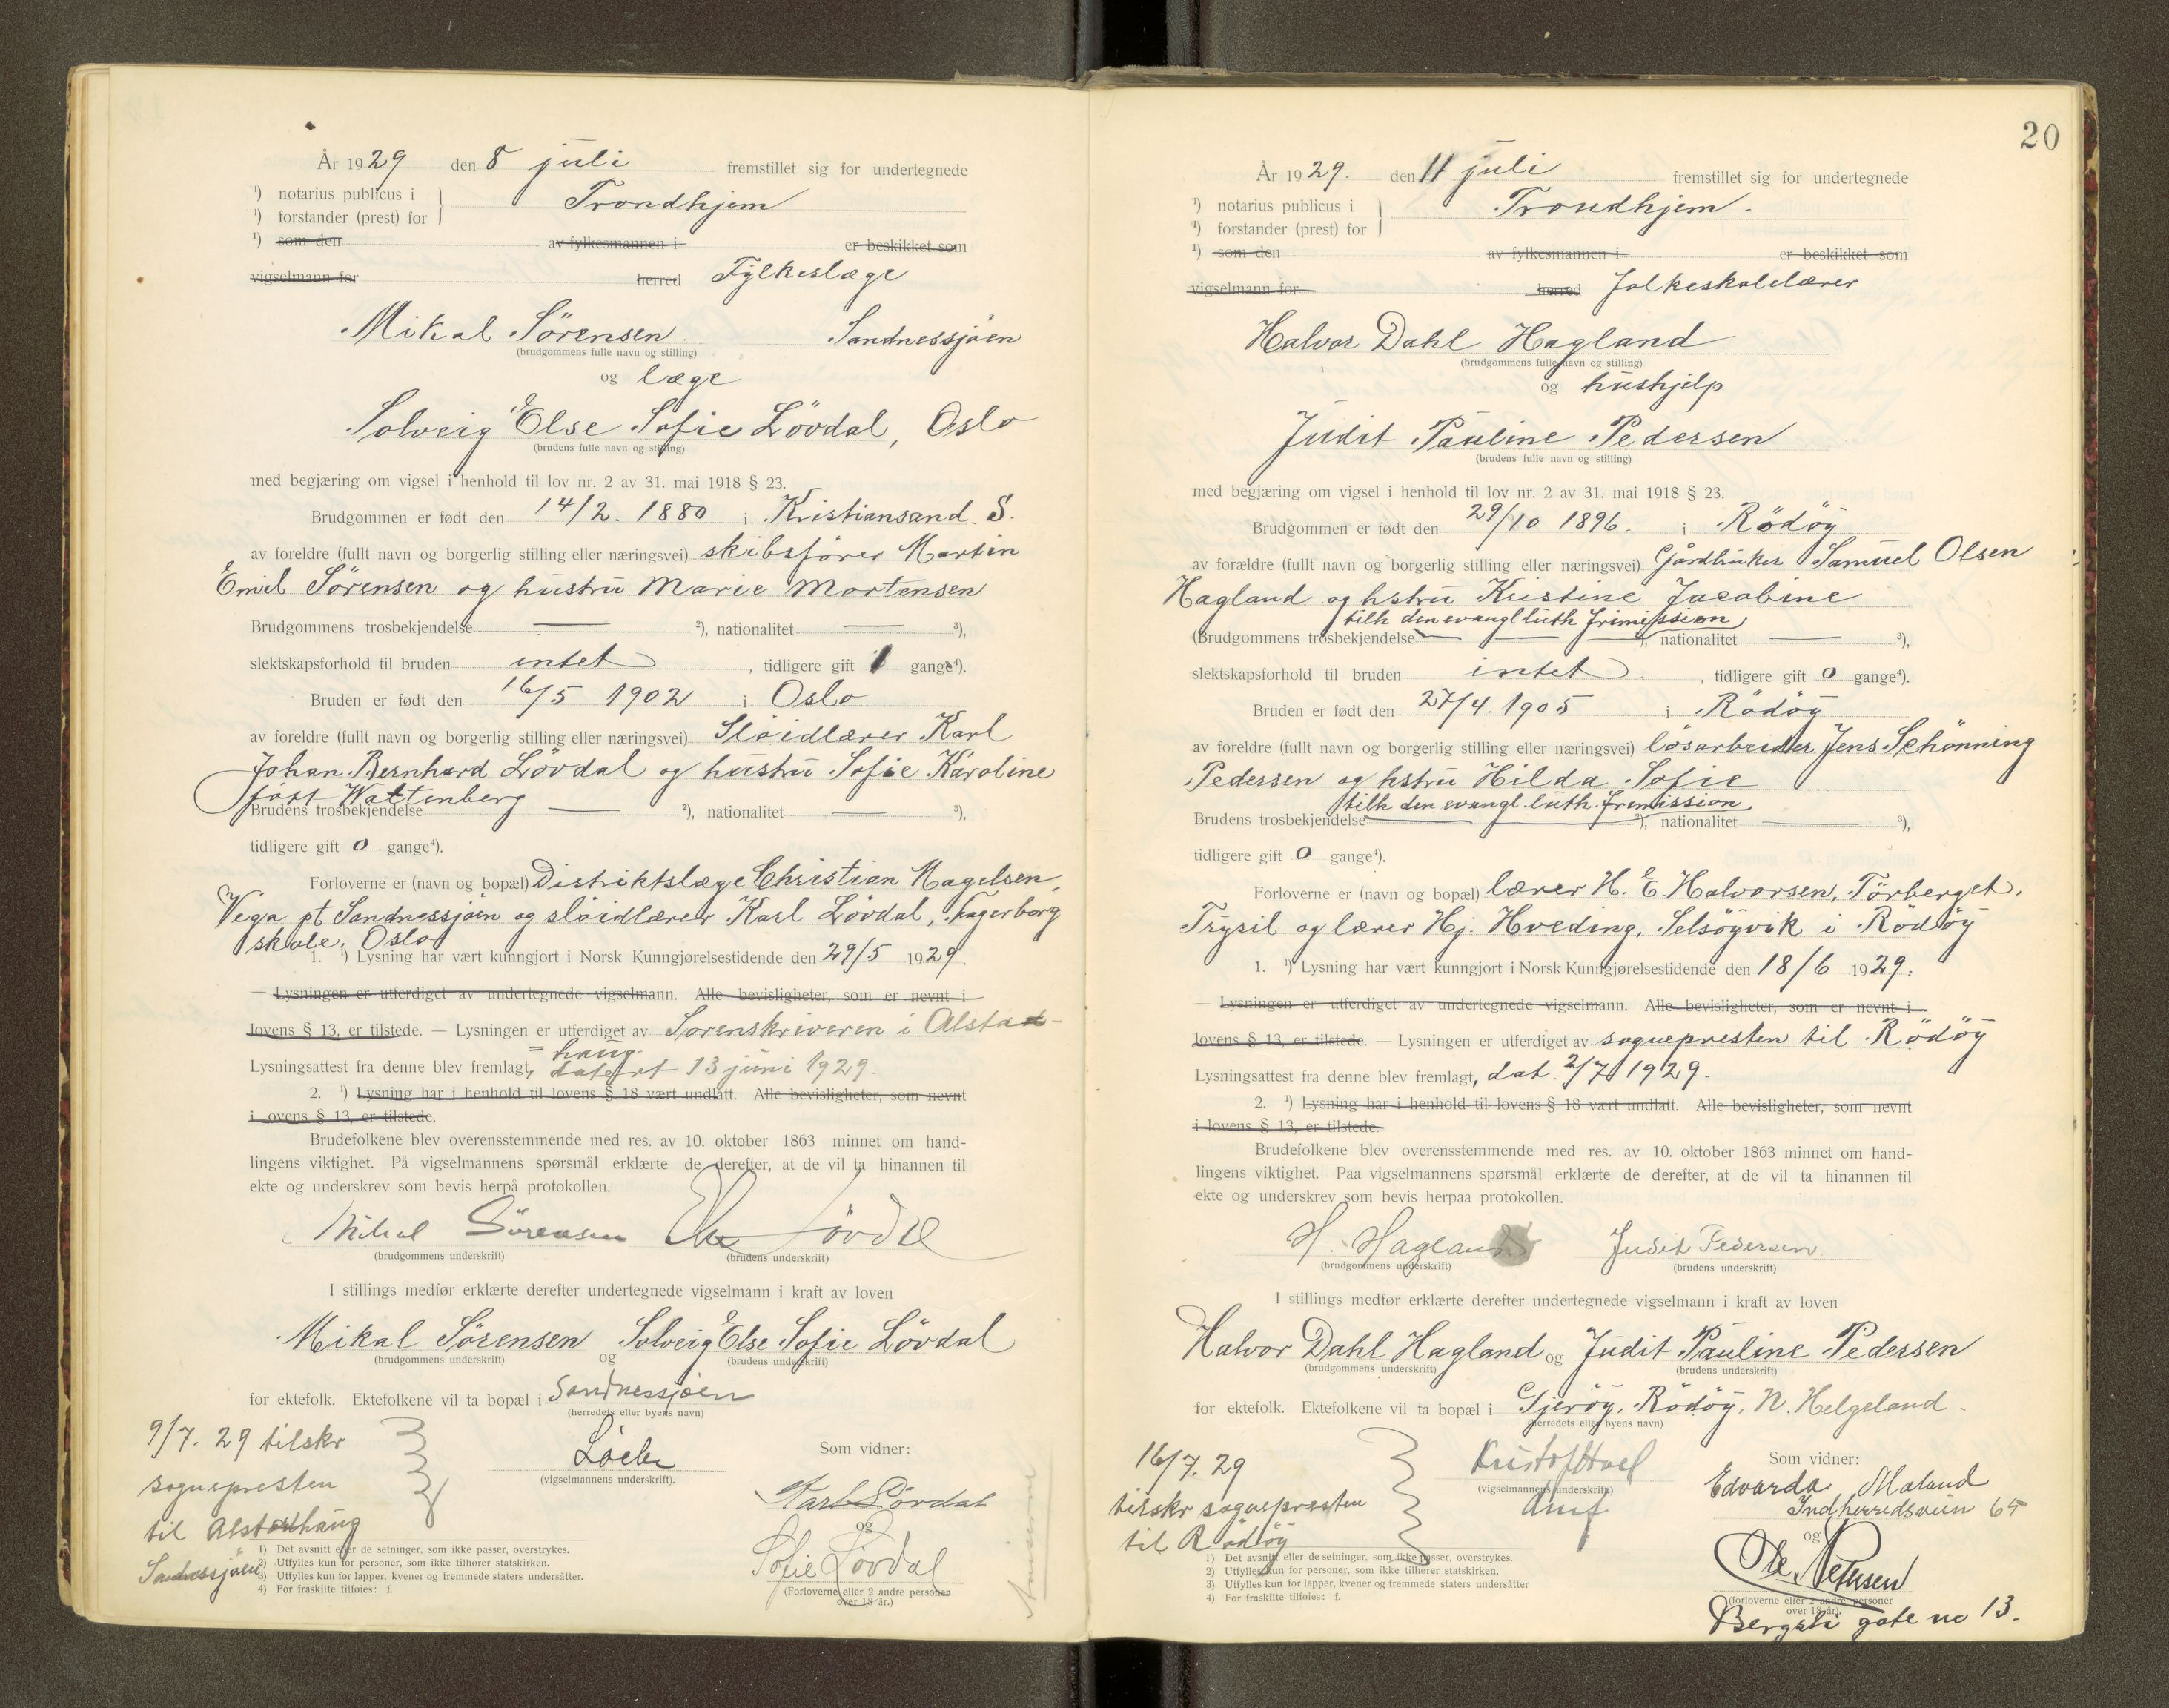 År 1929 den 8 juli fremstillet sig for undertegnede
¹) notarius publicus i
Trondhjem
¹) forstander (prest) for
¹) som den av fylkesmannen i er beskikket som
vigselmann for herred Fylkeslæge
Mikal Sörensen Sandnessjöen
(brudgommens fulle navn og stilling)
og læge
Solveig Else Sofie Lövdal, Oslo
(brudens fulle navn og stilling)
med begjæring om vigsel i henhold til lov nr. 2 av 31. mai 1918 § 23.
Brudgommen er født den 14/2. 1880 i Kristiansand. S.
av foreldre (fullt navn og borgerlig stilling eller næringsvei) skibsförer Martin
Emil Sörensen og hustru Marie Mortensen
Brudgommens trosbekjendelse — ²), nationalitet — ³),
slektskapsforhold til bruden intet , tidligere gift 1 gange⁴).
Bruden er født den 16/5 1902 i Oslo
av foreldre (fullt navn og borgerlig stilling eller næringsvei) Slöidlærer Karl
Johan Bernhard Lövdal og hustru Sofie Karoline
født Wattenberg
Brudens trosbekjendelse — ²), nationalitet — ³),
tidligere gift 0 gange⁴).
Forloverne er (navn og bopæl) Distriktslæge Christian Magelsen,
Vega pt Sandnessjöen og slöidlærer Karl Lövdal, Fagerborg
skole, Oslo
1. ¹) Lysning har vært kunngjort i Norsk Kunngjørelsestidende den 29/5 1929.
— Lysningen er utferdiget av undertegnede vigselmann. Alle bevisligheter, som er nevnt i
lovens § 13, er tilstede. — Lysningen er utferdiget av Sorenskriveren i Alsta-
haug
Lysningsattest fra denne blev fremlagt, datert 13 juni 1929.
2. ¹) Lysning har i henhold til lovens § 18 vært undlatt. Alle bevisligheter, som nevnt
i lovens § 13, er tilstede.
Brudefolkene blev overensstemmende med res. av 10. oktober 1863 minnet om hand-
lingens viktighet. På vigselmannens spørsmål erklærte de derefter, at de vil ta hinannen til
ekte og underskrev som bevis herpå protokollen.
Mikal Sörensen Else Lövdal
(brudgommens underskrift) (brudens underskrift)
I stillings medfør erklærte derefter undertegnede vigselmann i kraft av loven
Mikal Sörensen og Solveig Else Sofie Lövdal
(brudgommens underskrift) (brudens underskrift)
for ektefolk. Ektefolkene vil ta bopæl i Sandnessjöen
(herredets eller byens navn)
9/7. 29 tilskr
sognepresten
til Alstahaug
Sandnessjöen
(vigselmannens underskrift).
Som vidner:
Karl Lövdal
og
Sofie Lövdal
(Forloverne eller 2 andre personer
over 18 år.)
1) Det avsnitt eller de setninger, som ikke passer, overstrykes.
2) Utfylles kun for personer, som ikke tilhører statskirken.
3) Utfylles kun for lapper, kvener og fremmede staters undersåtter.
4) For fraskilte tilføies: f.
20
År 1929. den 11 juli fremstillet sig for undertegnede
¹) notarius publicus i
Trondhjem.
¹) forstander (prest) for
¹) som den av fylkesmannen i er beskikket som
vigselmann for herred Folkeskolelærer
Halvor Dahl Hagland
(brudgommens fulle navn og stilling)
og hushjelp
Judit Pauline Pedersen
(brudens fulle navn og stilling)
med begjæring om vigsel i henhold til lov nr. 2 av 31. mai 1918 § 23.
Brudgommen er født den 29/10 1896. i Rödöy
av forældre (fullt navn og borgerlig stilling eller næringsvei) Gårdbruker Samuel Olsen
Hagland og hstru Kristine Jacobine
tilh den evangl luth frimission
(Brudgommens trosbekjendelse — ²), nationalitet — ³),
slektskapsforhold til bruden intet , tidligere gift 0 gange⁴).
Bruden er født den 27/4. 1905 i Rödöy
av foreldre (fullt navn og borgerlig stilling eller næringsvei) lösarbeider Jens Schönning
Pedersen og hstru Hilda Sofie
tilh den evangl. luth. frimission
Brudens trosbekjendelse ²), nationalitet — ³),
tidligere gift 0 gange⁴).
Forloverne er (navn og bopæl) lærer H. E. Halvorsen, Törberget,
Trysil og lærer Hj. Hveding, Selsöyvik i Rödöy
1. ¹) Lysning har vært kunngjort i Norsk Kunngjørelsestidende den 18/6 1929.
— Lysningen er utferdiget av undertegnede vigselmann. Alle bevisligheter, som er nevnt i
lovens § 13, er tilstede. — Lysningen er utferdiget av sognepresten til Rödöy
Lysningsattest fra denne blev fremlagt, dat. 2/7 1929.
2. ¹) Lysning har i henhold til lovens § 18 vært undlatt. Alle bevisligheter, som nevnt
i lovens § 13, er tilstede.
Brudefolkene blev overensstemmende med res. av 10. oktober 1863 minnet om hand-
lingens viktighet. Paa vigselmannens spørsmål erklærte de derefter, at de vil ta hinannen til
ekte og underskrev som bevis herpaa protokollen.
H. Hagland Judit Pedersen
(brudgommens underskrift) (brudens underskrift)
I stillings medfør erklærte derefter undertegnede vigselmann i kraft av loven
Halvor Dahl Hagland og Judit Pauline Pedersen
(brudgommens underskrift) (brudens underskrift)
for ektefolk. Ektefolkene vil ta bopæl i Gjeröy, Rödöy, N. Helgeland.
(herredets eller byens navn)
16/7. 29
tilskr sognepresten
til Rödöy
(vigselmannens underskrift)
Som vidner:
Edvarda Maland
Indherredsveien 65
og
Ole Petersen
(forloverne eller 2 andre personer
over 18 år).
Bergsli gate no 13.
1) Det avsnitt eller de setninger, som ikke passer, overstrykes.
2) Utfylles kun for personer, som ikke tilhører statskirken.
3) Utfylles kun for lapper, kvener og fremmede staters undersåtter
4) For fraskilte tilføies: f.